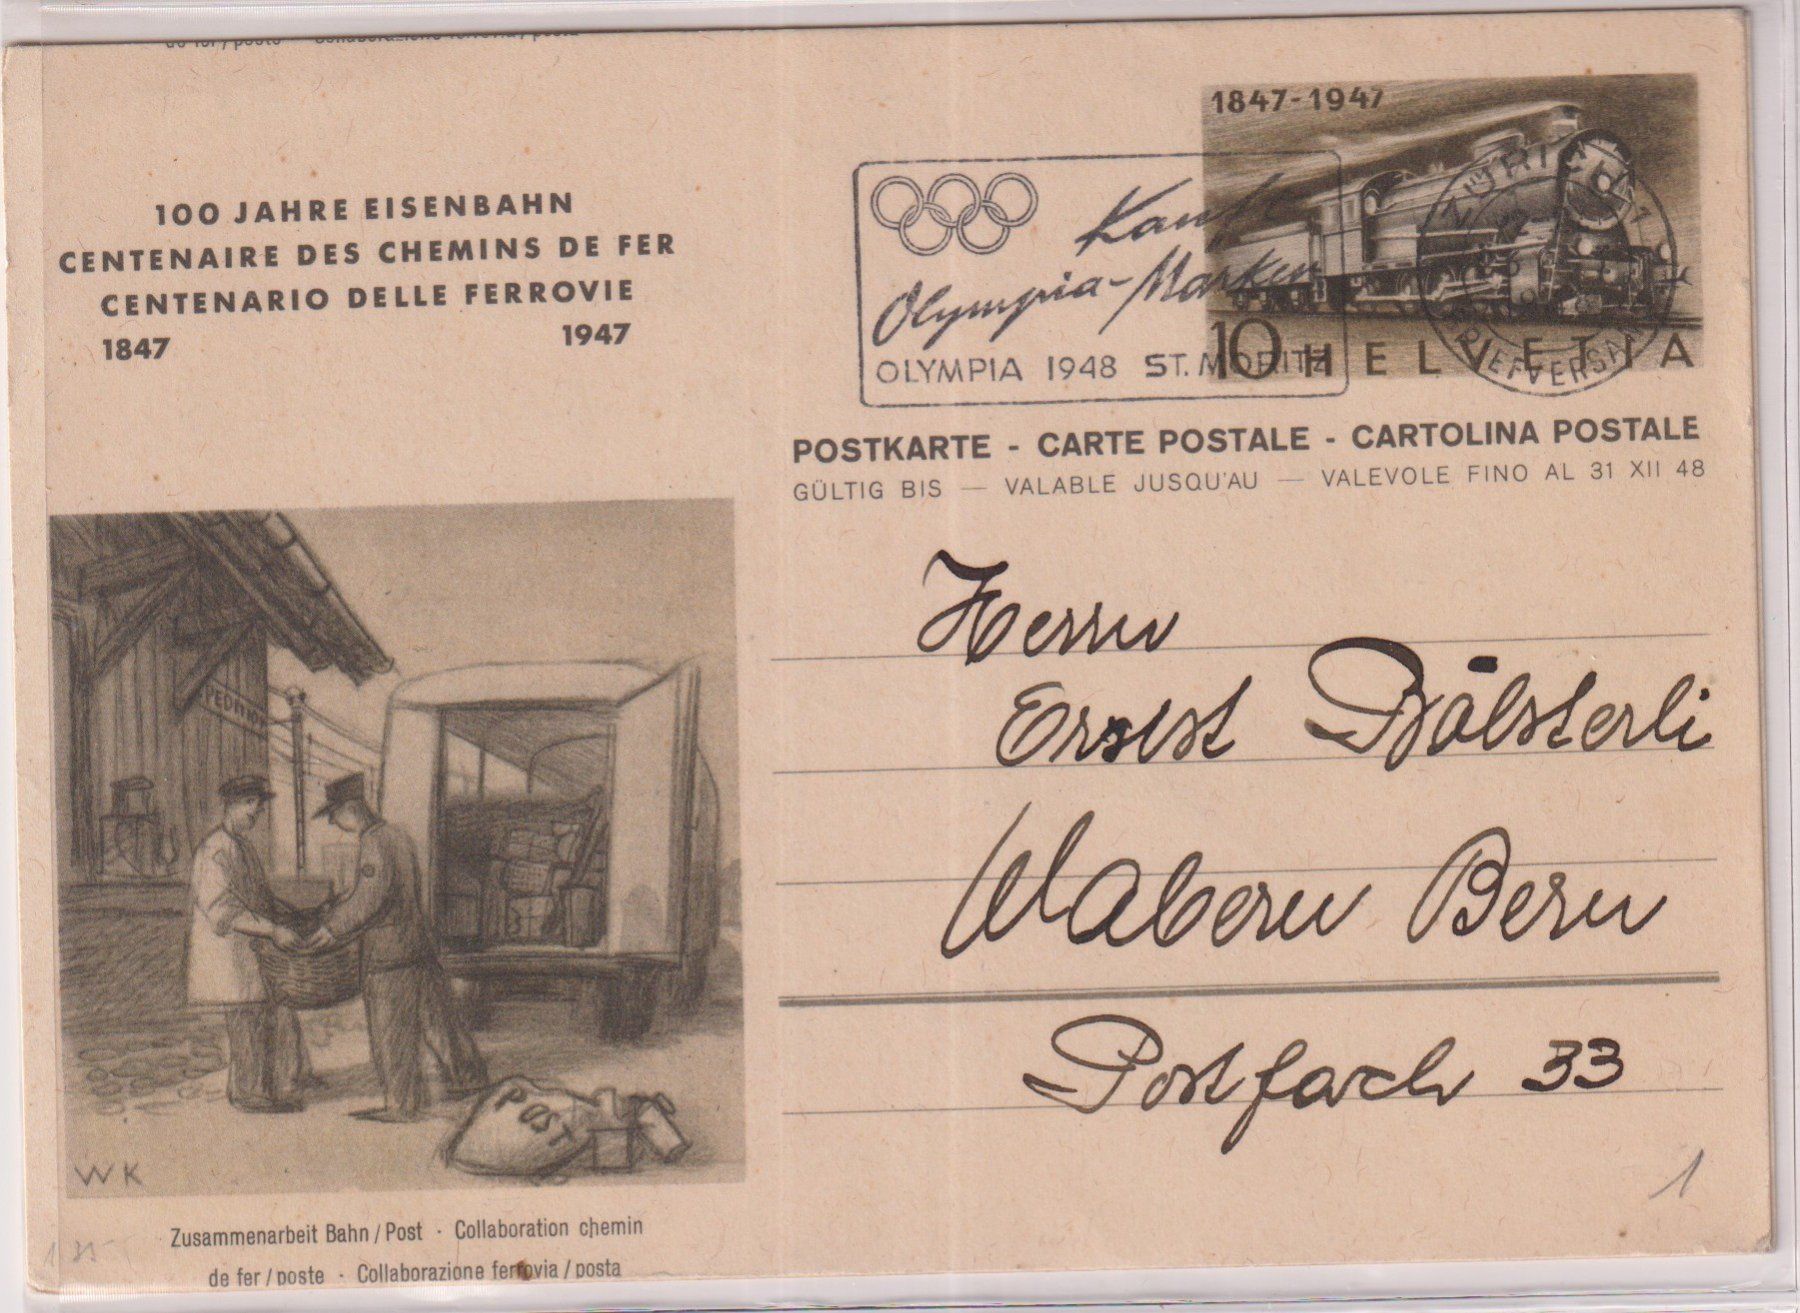 de fer / poste · Collaborazione ferrovia / posta
100 JAHRE EISENBAHN
CENTENAIRE DES CHEMINS DE FER
CENTENARIO DELLE FERROVIE
1847 1947
1847-1947
Kauft
Olympia-Marken
OLYMPIA 1948 ST. MORITZ
ZÜRICH 1
BRIEFVERSAND
10 HELVETIA
POSTKARTE - CARTE POSTALE - CARTOLINA POSTALE
GÜLTIG BIS — VALABLE JUSQU'AU — VALEVOLE FINO AL 31 XII 48
Herrn
Ernst Bölsterli
Wabern Bern
Postfach 33
1
POST
WK
Zusammenarbeit Bahn / Post · Collaboration chemin
de fer / poste · Collaborazione ferrovia / posta